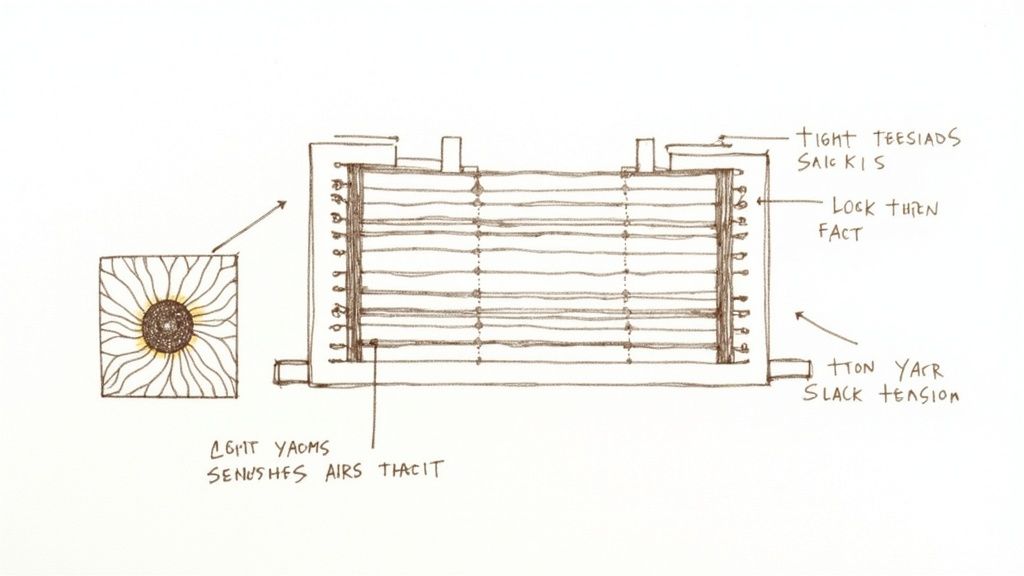 TIGHT TEESIADS
SAICKIS
LOCK THIEN
FACT
TTON YACR
SLACK TENSION
YAOMS
AIRS THACIT